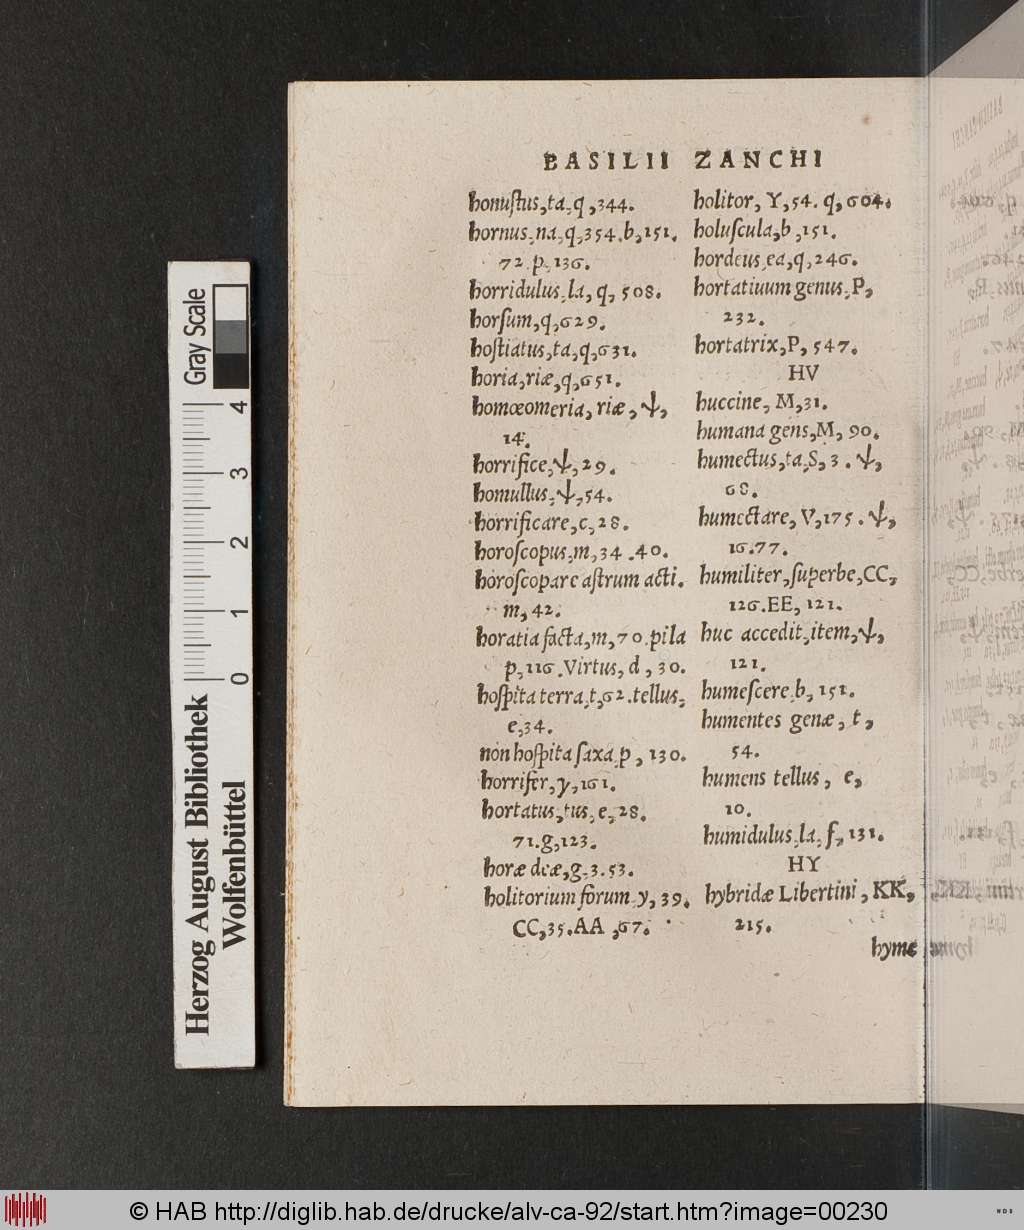 BASILII ZANCHI
honuſtus,ta,q,344.
hornus,na,q,354.b,151.
72.p,136.
horridulus,la,q,508.
horſum,q,629.
hoſtiatus,ta,q,631.
horia,riæ,q,651.
homœomeria,riæ,ψ,
14.
horrifice,ψ,29.
homullus,ψ,54.
horrificare,c,28.
horoſcopus,m,34.40.
horoſcopare aſtrum acti.
m,42.
horatia facta,m,70.pila
p,116.Virtus,d,30.
hoſpita terra,t,62.tellus,
e,34.
non hoſpita ſaxa,p,130.
horrifer,y,161.
hortatus,tus,e,28.
71.g,123.
horæ deæ,g,3.53.
holitorium forum,y,39.
CC,35.AA,67.
holitor,Y,54.q,604.
holuſcula,b,151.
hordeus,ea,q,246.
hortatiuum genus,P,
232.
hortatrix,P,547.
HV
huccine,M,31.
humana gens,M,90.
humectus,ta,S,3.ψ,
68.
humectare,V,175.ψ,
16.77.
humiliter,ſuperbe,CC,
126.EE,121.
huc accedit,item,ψ,
121.
humeſcere,b,151.
humentes genæ,t,
54.
humens tellus,e,
10.
humidulus,la,f,131.
HY
hybridæ Libertini,KK,
215.
hyme
Gray Scale
4
3
2
1
0
Herzog August Bibliothek
Wolfenbüttel
© HAB http://diglib.hab.de/drucke/alv-ca-92/start.htm?image=00230